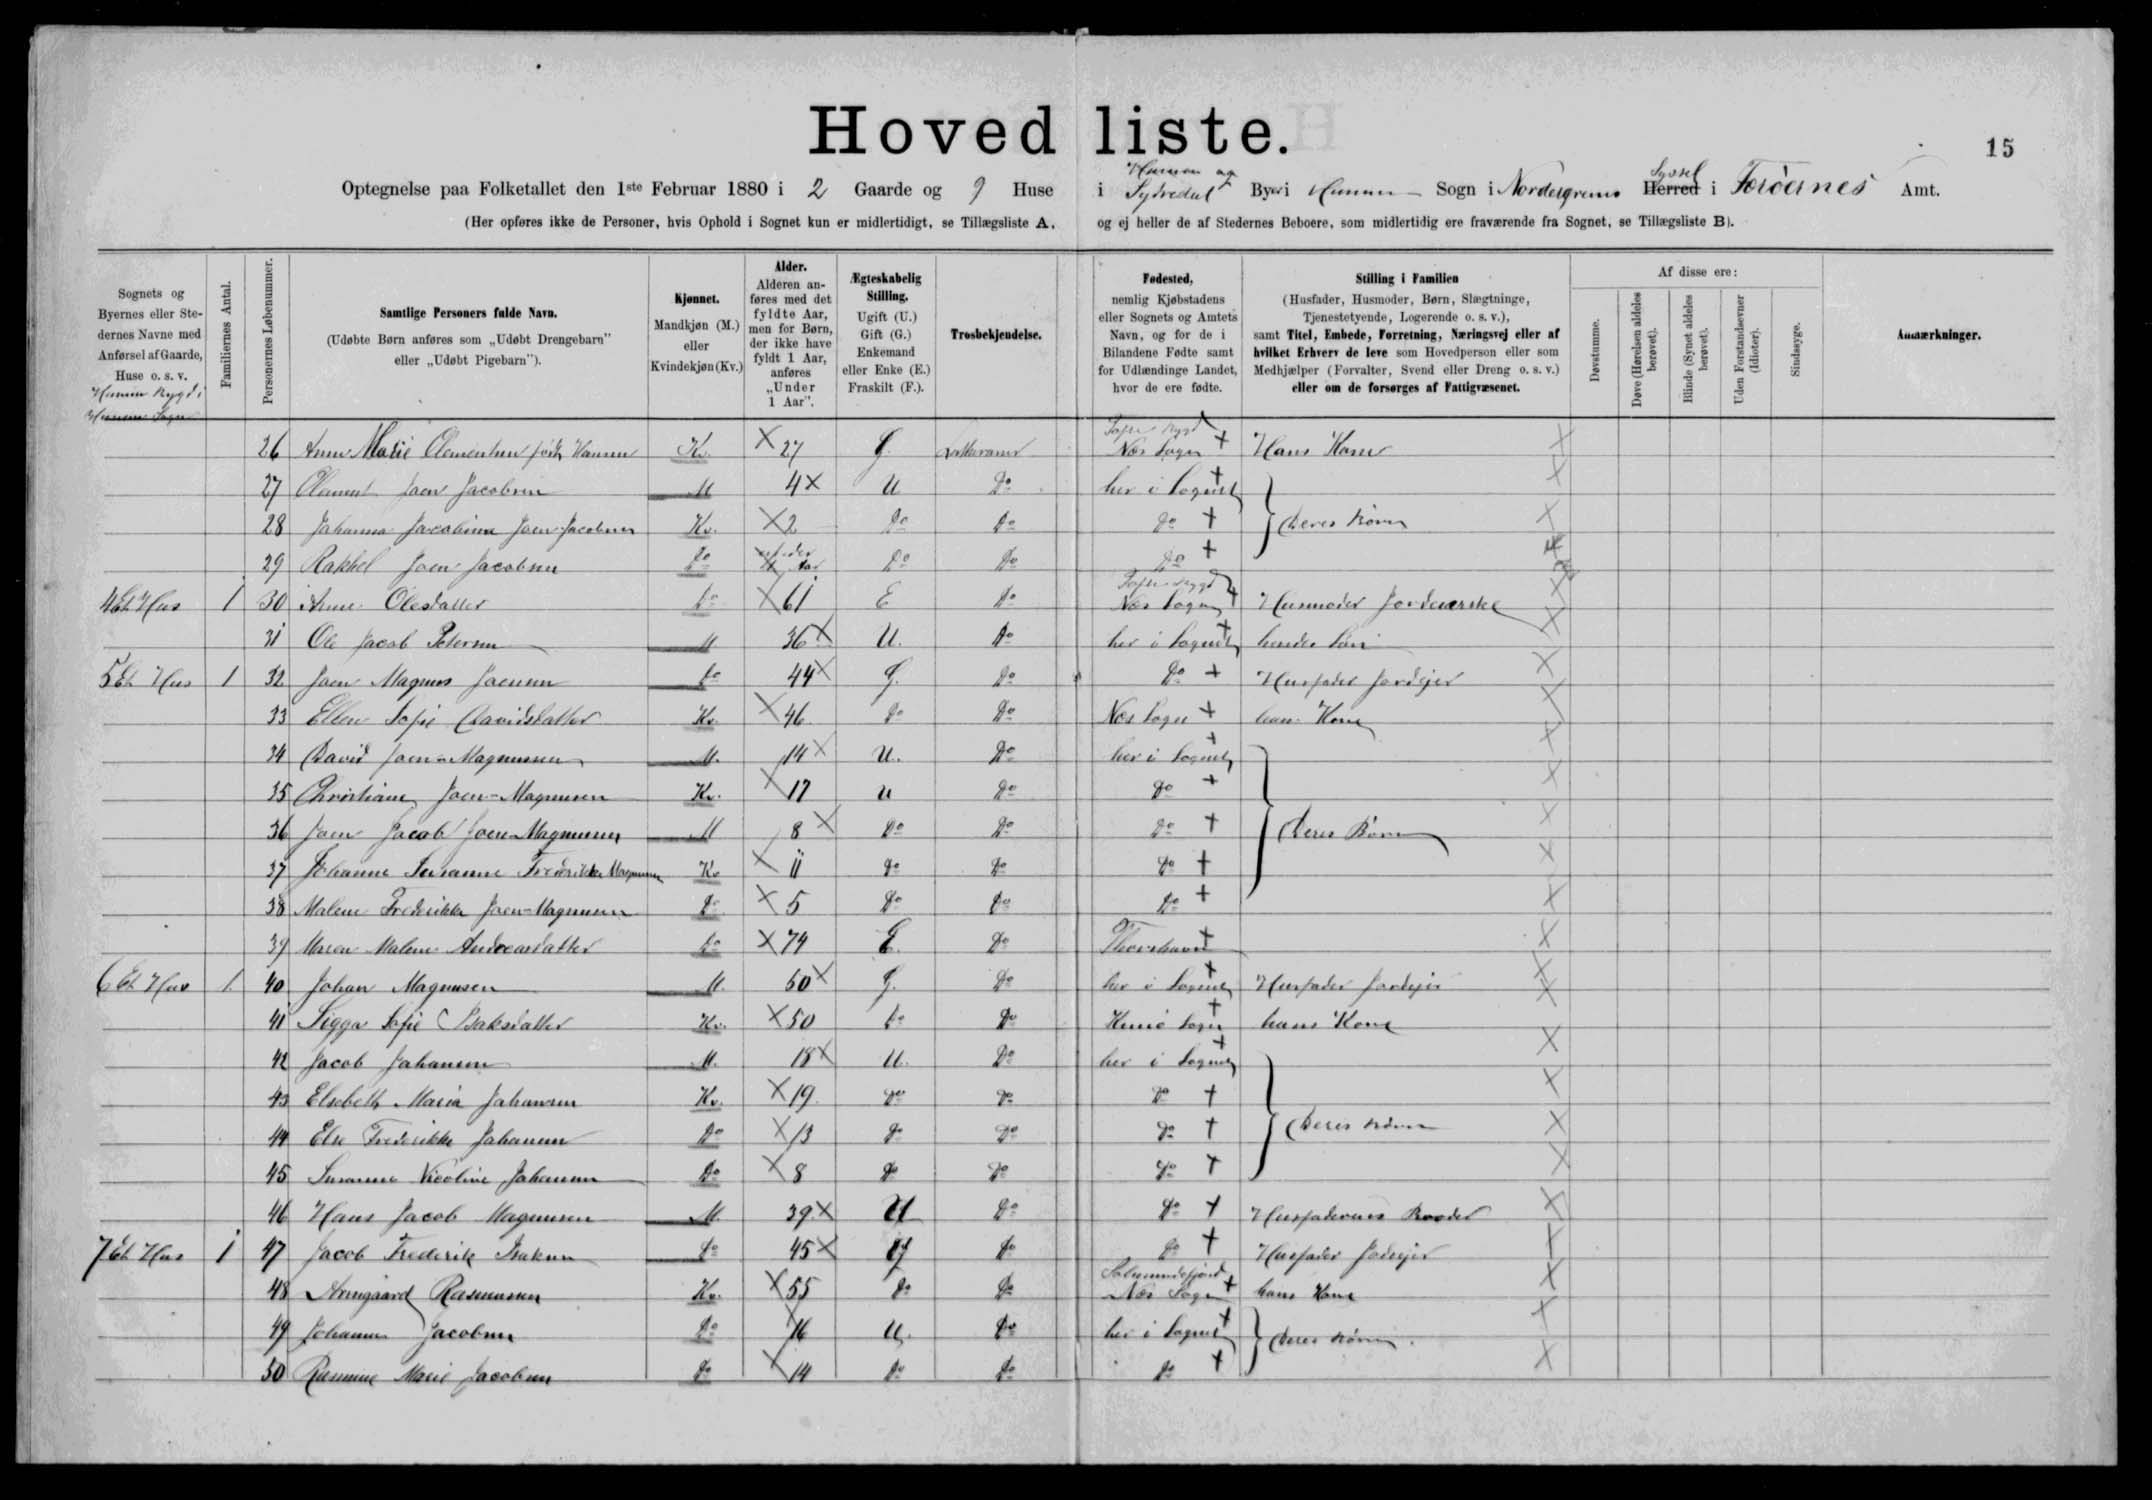 Hovedliste.
15
Optegnelse paa Folketallet den 1ste Februar 1880 i 2 Gaarde og 9 Huse i Husum og Sydredal Byer i Husum Sogn i Norderørernes Syssel Herred i Færøernes Amt.
(Her opføres ikke de Personer, hvis Ophold i Sognet kun er midlertidigt, se Tillægsliste A, og ej heller de af Stedernes Beboere, som midlertidig ere fraværende fra Sognet, se Tillægsliste B).
Sognets og Byernes eller Stedernes Navne med Anførsel af Gaarde, Huse o. s. v.
Familiernes Antal.
Personernes Løbenummer.
Samtlige Personers fulde Navn.
(Udøbte Børn anføres som „Udøbt Drengebarn" eller „Udøbt Pigebarn").
Kjønnet.
Mandkjøn (M.) eller Kvindekjøn (Kv.)
Alder.
Alderen anføres med det fyldte Aar, men for Børn, der ikke have fyldt 1 Aar, anføres „Under 1 Aar".
Ægteskabelig Stilling.
Ugift (U.) Gift (G.) Enkemand eller Enke (E.) Fraskilt (F.).
Trosbekjendelse.
Fødested,
nemlig Kjøbstadens eller Sognets og Amtets Navn, og for de i Bilandene Fødte samt for Udlændinge Landet, hvor de ere fødte.
Stilling i Familien
(Husfader, Husmoder, Børn, Slægtninge, Tjenestetyende, Logerende o. s. v.),
samt Titel, Embede, Forretning, Næringsvej eller af hvilket Erhverv de leve som Hovedperson eller som Medhjælper (Forvalter, Svend eller Dreng o. s. v.) eller om de forsørges af Fattigvæsenet.
Af disse ere:
Døvstumme.
Døve (Hørelsen aldeles berøvet).
Blinde (Synet aldeles berøvet).
Uden Forstandsevner (Idioter).
Sindssyge.
Anmærkninger.
Husum Bygd i
Husum Sogn
26 Anne Marie Clementsen født Hansen Kv. 27 G. Lutheraner Næs Sogn Hans Kone
27 Clement Joen Jacobsen M 4 U Do her i Sognet
28 Johanna Jacobina Joen-Jacobsen Kv. 2 Do Do Do Deres Børn
29 Rakhel Joen Jacobsen Do under 1 Aar Do Do Do
4 Et Hus 1 30 Anne Olesdatter Do 61 E Do Næs Sogn Husmoder Jordeierske
31 Ole Jacob Petersen M 36 U. Do her i Sognet hendes Søn
5 Et Hus 1 32 Joen Magnus Joensen Do 44 G. Do Do Husfader Jordejer
33 Ellen Sofie Davidsdatter Kv. 46 Do Do Næs Sogn hans Kone
34 David Joen-Magnussen M. 14 U. Do her i Sognet
35 Christiane Joen-Magnusen Kv. 17 U Do Do
36 Joen Jacob Joen-Magnusen M 8 Do Do Do Deres Børn
37 Johanne Susanne Frederikke Magnusen Kv 11 Do Do Do
38 Malene Frederikke Joen-Magnusen Do 5 Do Do Do
39 Maren Malene Andreasdatter Do 74 E. Do Thorshavn
6 Et Hus 1. 40 Johan Magnusen M. 50 G. Do her i Sognet Husfader Jordejer
41 Sigga Sofie Isaksdatter Kv. 50 Do Do Kunø Sogn hans Kone
42 Jacob Johansen M. 18 U. Do her i Sognet
43 Elsebeth Maria Johansen Kv. 19. Do Do Do
44 Else Frederikke Johansen Do 13 Do Do Do Deres Børn
45 Susanne Nicoline Johansen Do 8 Do Do Do
46 Hans Jacob Magnusen M. 39. U Do Do Husfaderens Broder
7 Et Hus 1 47 Jacob Frederik Isaksen Do 45 G Do Do Husfader Jordejer
48 Armgaard Rasmusen Kv. 55 Do Do Næs Sogn hans Kone
49 Johanne Jacobsen Do 16 U. Do her i Sognet Deres Børn.
50 Rasmine Marie Jacobsen Do 14 Do Do Do